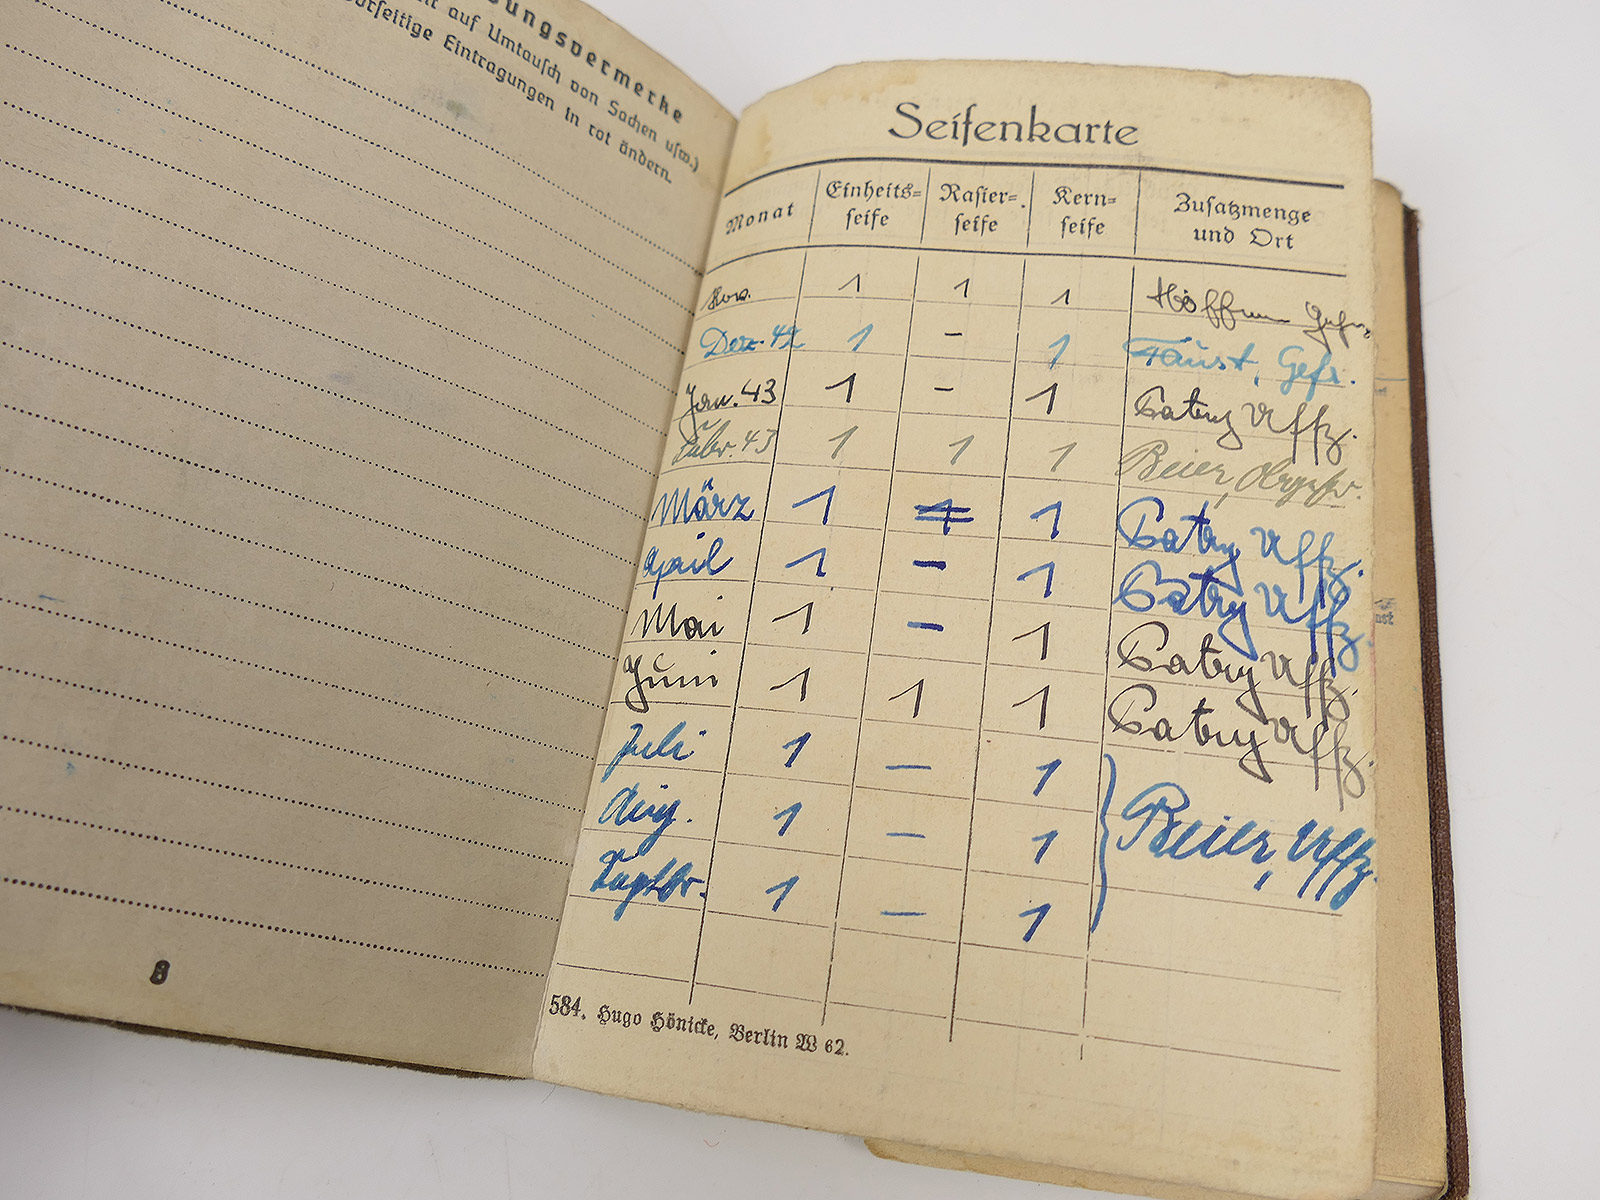 ungsvermerke
auf Umtausch von Sachen usw.)
seitige Eintragungen in rot ändern.
8
Seifenkarte
Monat Einheits= seife Rasier= seife Kern= seife Zusatzmenge und Ort
Nov. 1 1 1
Dez. 42 1 – 1 Faust, Gefr.
Jan. 43 1 – 1 Patry Uffz.
Febr. 43 1 1 1 Beier,
März 1 1 1 Patry Uffz.
April 1 – 1 Patry Uffz.
Mai 1 – 1 Patry Uffz.
Juni 1 1 1 Patry Uffz.
Juli 1 – 1
Aug. 1 – 1 Beier, Uffz.
Septbr. 1 – 1
584. Hugo Hönicke, Berlin W 62.